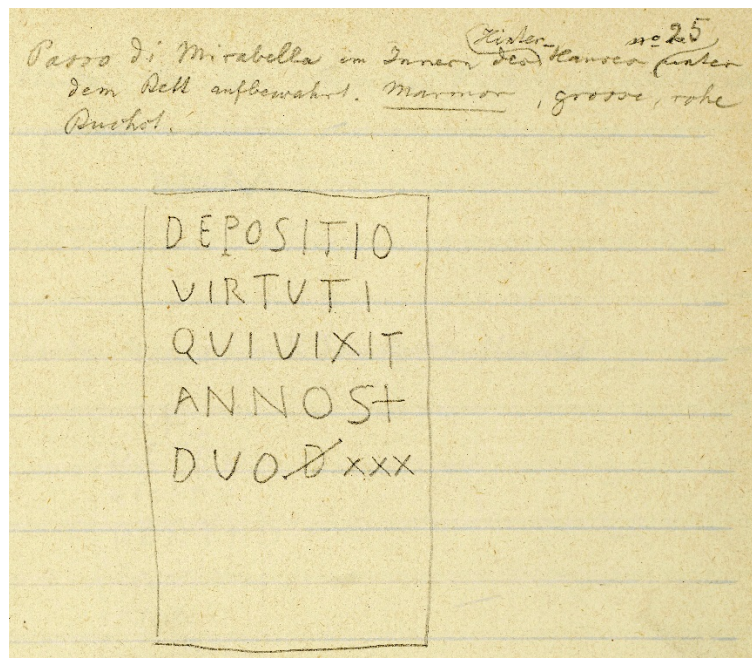 Hinter- no 25
Passo di Mirabella im Innern des Hauses unter
dem Bett aufbewahrt. Marmor, grosse, rohe
Buchst.
DEPOSITIO
VIRTUTI
QUIVIXIT
ANNOS+
DUO D XXX